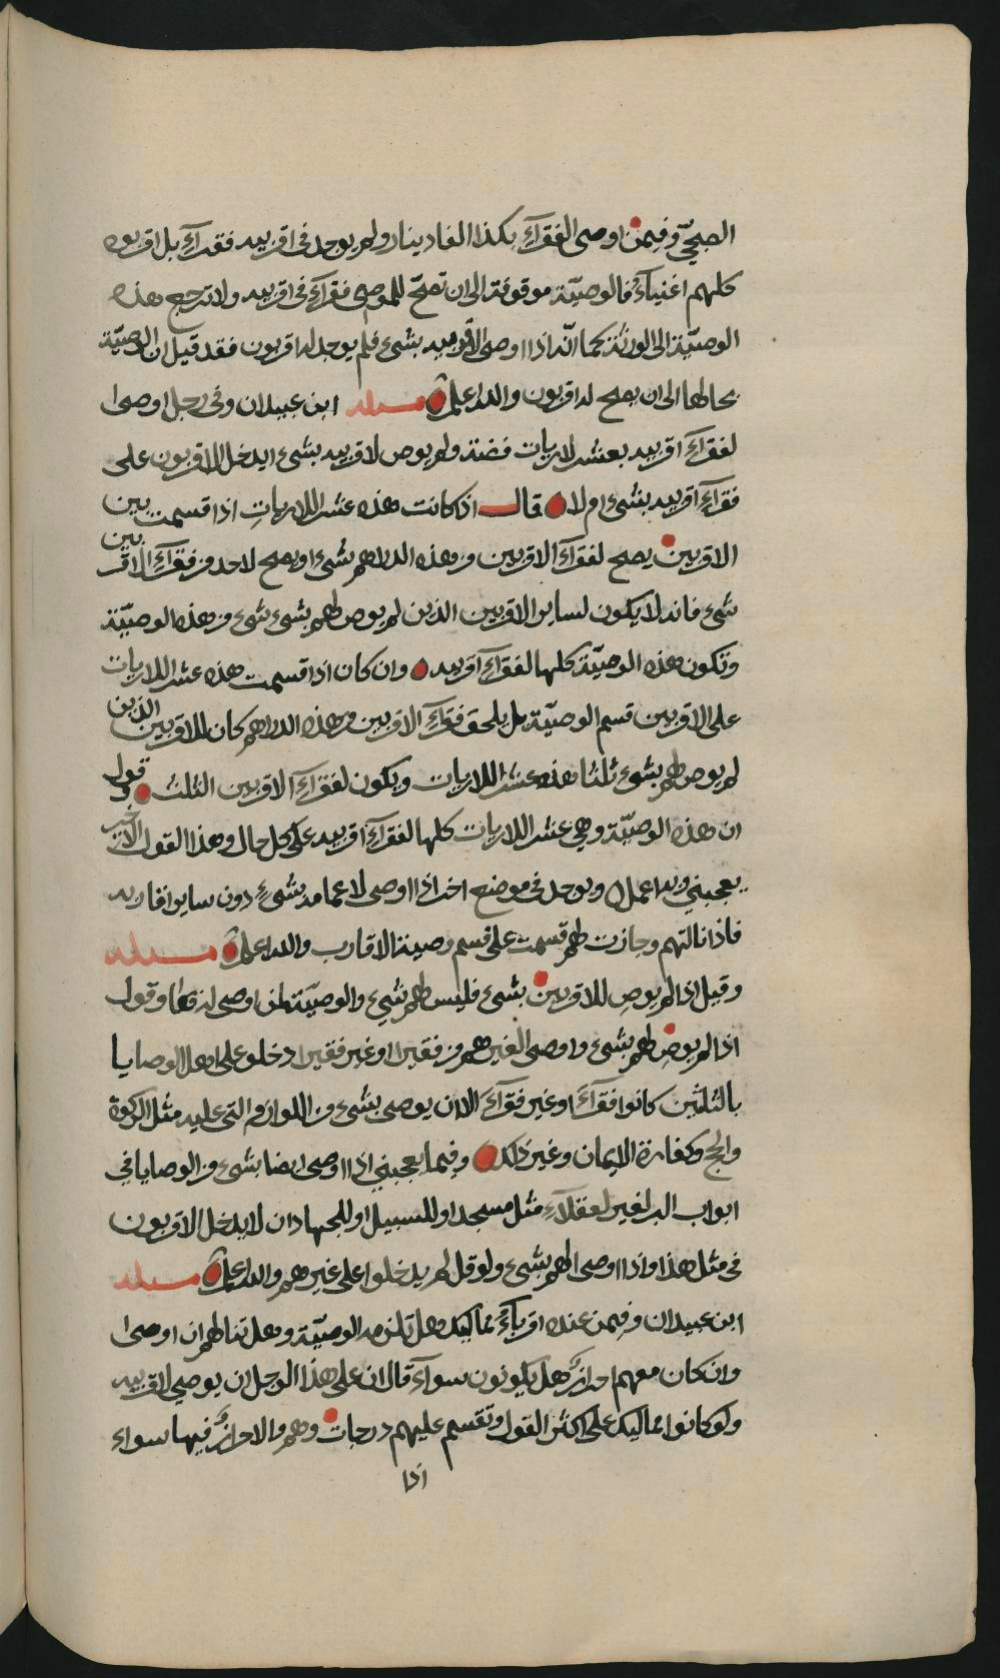 الصبحي وفيمن اوصى الفقرآء بكذا الفا دينار ولم يوجد في اقربيه فقرآء بل اقربوه
كلهم اغنيآء فالوصيّة موقوفة الى ان تصحّ للموصي فقرآء في اقربيه ولا ترجع هذه
الوصيّة الى الورثة كما انّه اذا اوصى لاقربيه بشيء فلم يوجد له اقربون فقد قيل ان الوصيّة
بحالها الى ان يصح له اقربون والله اعلم مسئلة ابن عبيدان وفي رجل اوصى
لفقرآء اقربيه بعشر لاريات فضة ولم يوص لاقربيه بشيء ايدخل الاقربون على
فقرآء اقربيه بشيء ام لا قال اذ كانت هذه عشر اللاريات اذا قسمت بين
الاقربين يصح لفقرآء الاقربين من هذه الدراهم شيء او يصح لاحد من فقرآء الاقربين
شيء فانه لا يكون لساير الاقربين الذين لم يوص لهم بشيء شيء من هذه الوصيّة
وتكون هذه الوصيّة كلها لفقرآء اقربيه وان كان اذا قسمت هذه عشر اللاريات
على الاقربين قسم الوصيّة لم يلحق فقرآء الاقربين من هذه الدراهم كان للاقربين الذين
لم يوص لهم بشيء ثلثا هذه عشر اللاريات ويكون لفقرآء الاقربين الثلث وقول
ان هذه الوصيّة وهي عشر اللاريات كلها لفقرآء اقربيه على كل حال وهذا القول الاخير
يعجبني وبه اعمل ويوجد في موضع اخر اذا اوصى لاعمامه بشيء دون ساير اقاربه
فاذا نالتهم وجازت لهم قسمت على قسم وصية الاقارب والله اعلم مسئلة
وقيل اذا لم يوص للاقربين بشيء فليس لهم شيء والوصيّة لمن اوصى له وقول
اذا لم يوص لهم بشيء واوصى لغيرهم من فقير او غير فقير ادخلو على اهل الوصايا
بالثلثين كانوا فقرآء او غير فقرآء الا ان يوصى بشيء من اللوازم التي عليه مثل الزكوة
والحج وكفارة الايمان وغير ذلك وفيما يعجبني اذا اوصى ايضا بشيء من الوصايا في
ابواب البر لغير لعقلآء مثل مسجد او للسبيل او للجهاد ان لا يدخل الاقربون
في مثل هذا واذا اوصى لهم بشيء ولو قل لم يدخلوا على غيرهم والله اعلم مسئلة
ابن عبيدان وفيمن عنده اقربآء مماليك هل تلزمه الوصيّة وهل تنالهم ان اوصى
وان كان معهم احرار هل يكونون سوآء قال ان على هذا الرجل ان يوصي لاقربيه
ولو كانوا مماليك على اكثر القول وتقسم عليهم درجات وهم والاحرار فيها سواء
اذا